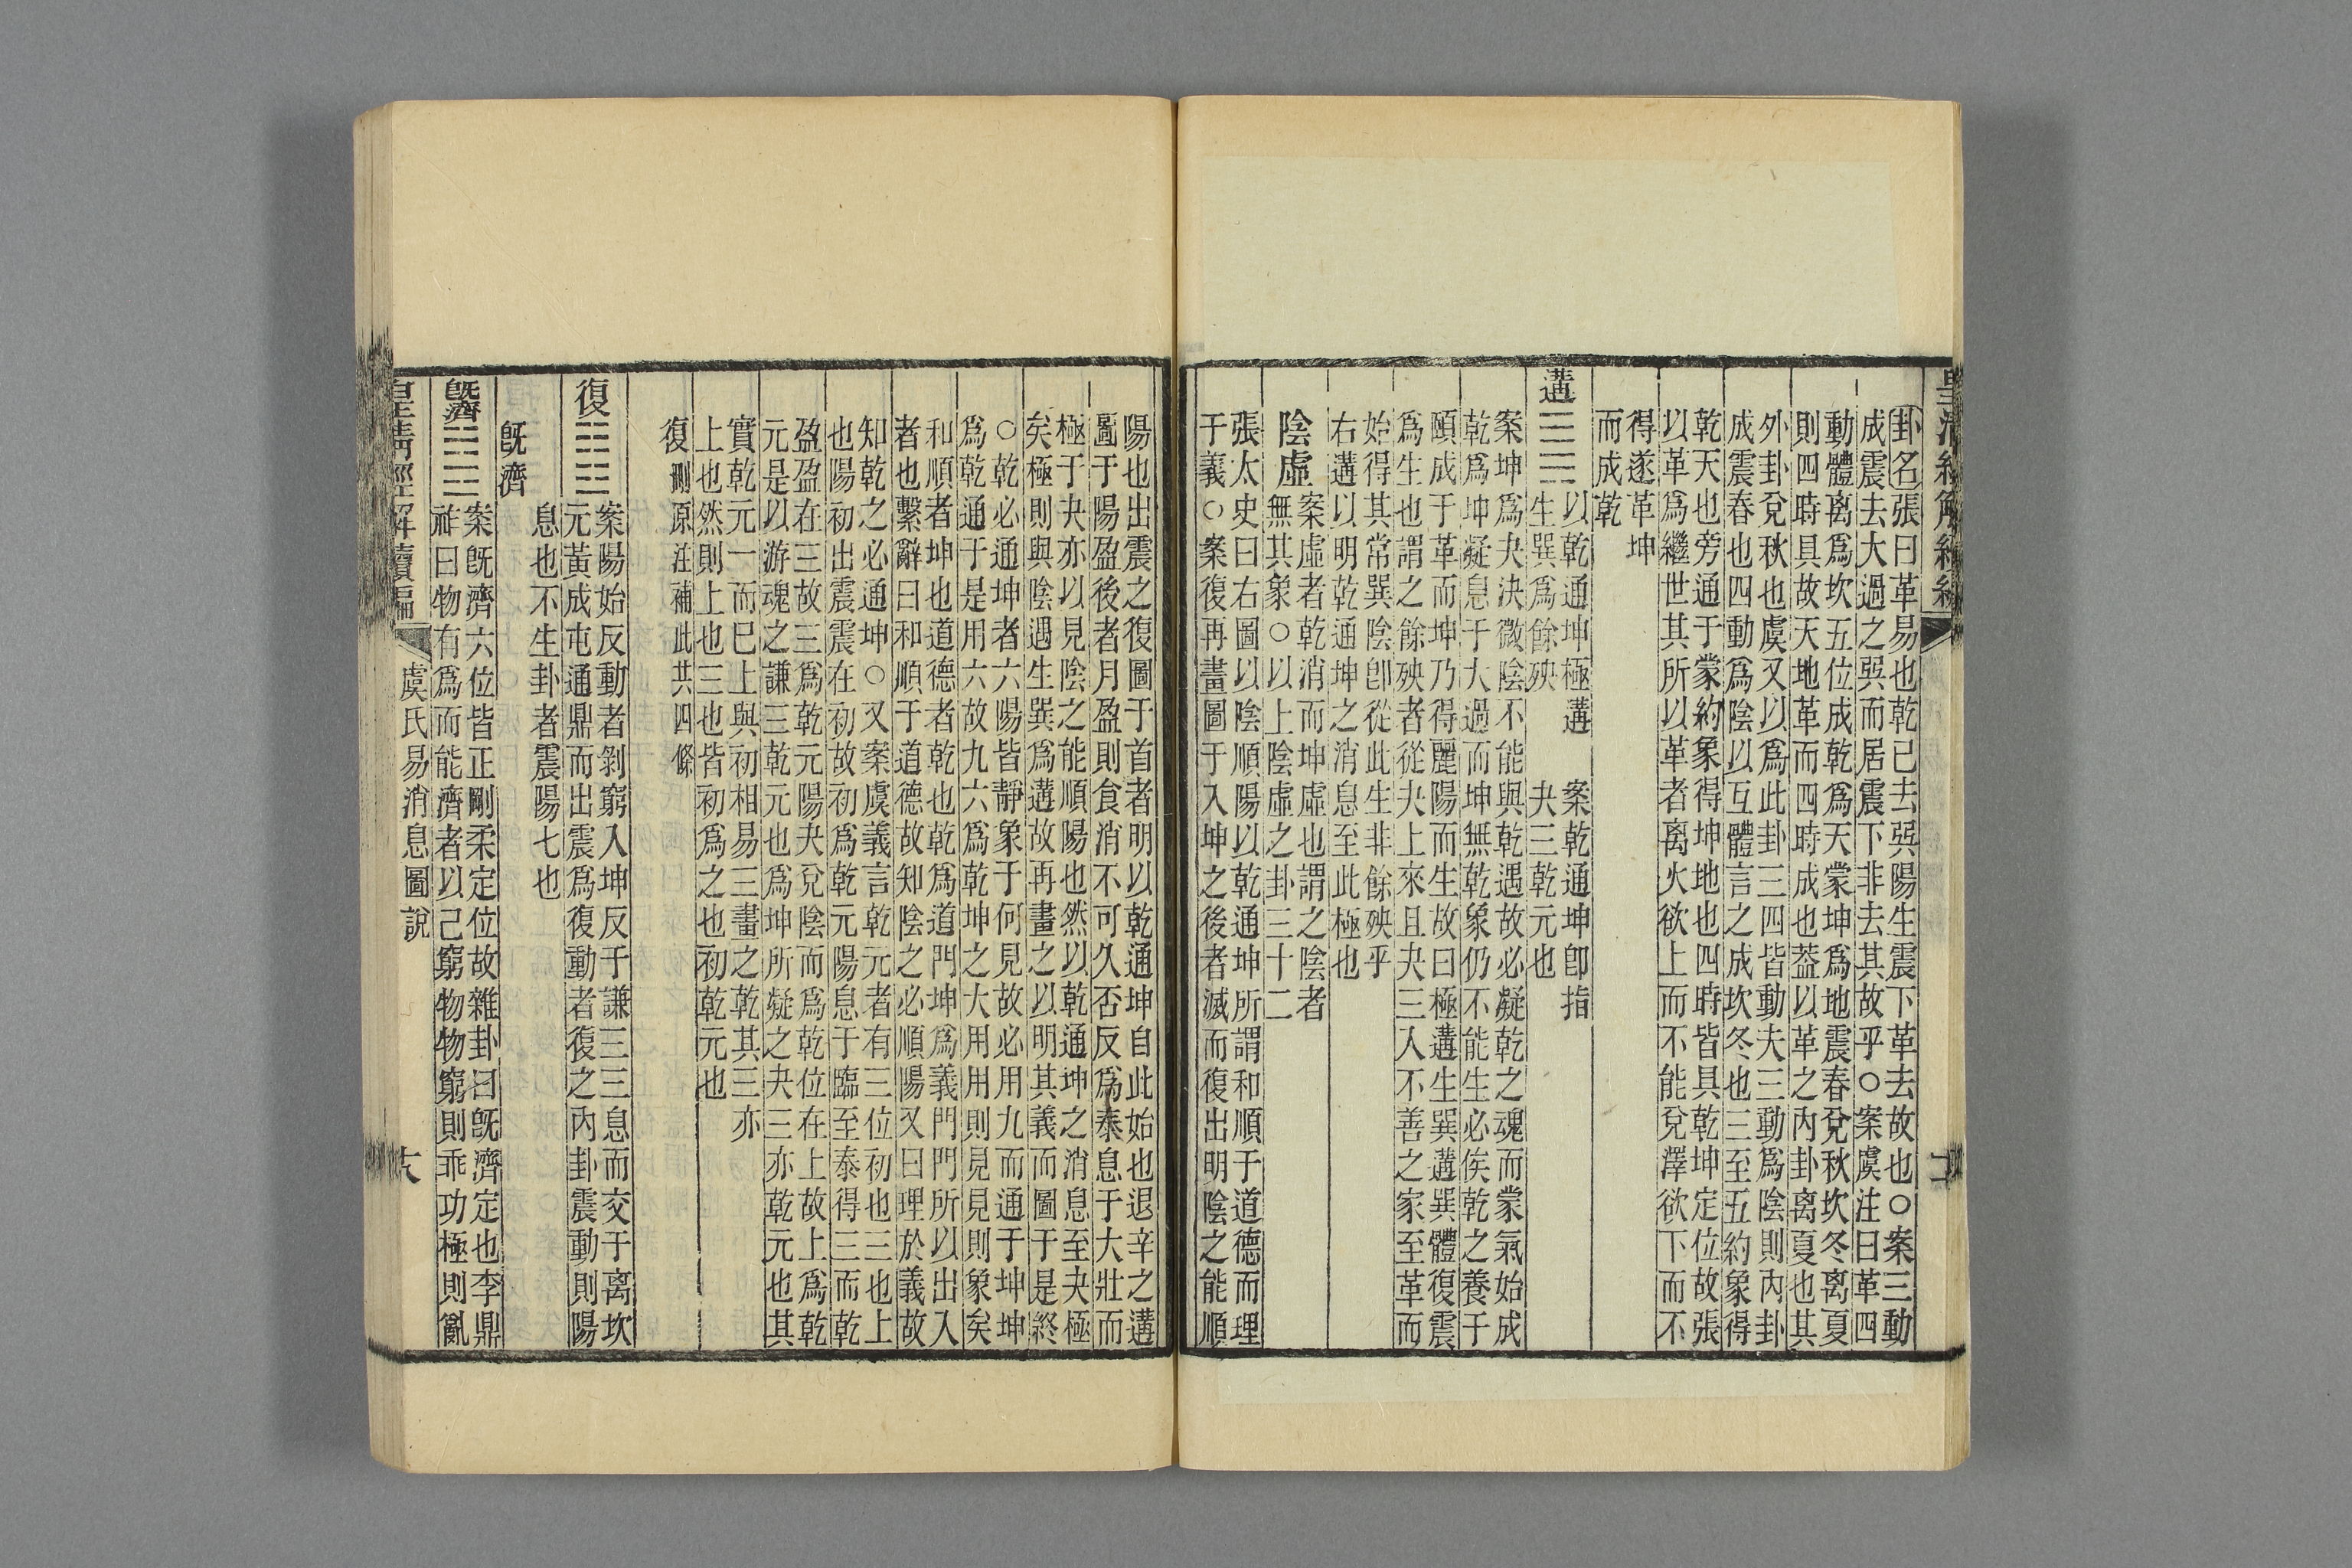 卦名張曰革易也乾已去㢲陽生震下革去故也○案三動
成震去大過之㢲而居震下非去其故乎○案虞注曰革四
動體离爲坎五位成乾爲天蒙坤爲地震春兌秋坎冬离夏
則四時具故天地革而四時成也葢以革之內卦离夏也其
外卦兌秋也虞又以爲此卦三四皆動夫三動爲陰則內卦
成震春也四動爲陰以互體言之成坎冬也三至五約象得
乾天也旁通于蒙約象得坤地也四時皆具乾坤定位故張
以革爲繼世其所以革者离火欲上而不能兌澤欲下而不
得遂革坤
而成乾
遘
以乾通坤極遘
生巽爲餘殃
案乾通坤卽指
夬三乾元也
案坤爲夬決微陰不能與乾遇故必凝乾之魂而蒙氣始成
乾爲坤凝息于大過而坤無乾象仍不能生必俟乾之養于
頤成于革而坤乃得麗陽而生故曰極遘生巽遘巽體復震
爲生也謂之餘殃者從夬上來且夬三入不善之家至革而
始得其常巽陰卽從此生非餘殃乎
右遘以明乾通坤之消息至此極也
陰虛
案虛者乾消而坤虛也謂之陰者
無其象○以上陰虛之卦三十二
張太史曰右圖以陰順陽以乾通坤所謂和順于道德而理
于義○案復再畫圖于入坤之後者滅而復出明陰之能順
陽也出震之復圖于首者明以乾通坤自此始也退辛之遘
圖于陽盈後者月盈則食消不可久否反爲泰息于大壯而
極于夬亦以見陰之能順陽也然以乾通坤之消息至夬極
矣極則與陰遇生巽爲遘故再畫之以明其義而圖于是終
○乾必通坤者六陽皆靜象于何見故必用九而通于坤坤
爲乾通于是用六故九六爲乾坤之大用用則見見則象矣
和順者坤也道德者乾也乾爲道門坤爲義門門所以出入
者也繫辭曰和順于道德故知陰之必順陽又曰理於義故
知乾之必通坤○又案虞義言乾元者有三位初也三也上
也陽初出震震在初故初爲乾元陽息于臨至泰得三而乾
盈盈在三故三爲乾元陽夬兌陰而爲乾位在上故上爲乾
元是以游魂之謙三乾元也爲坤所凝之夬三亦乾元也其
實乾元一而巳上與初相易三畫之乾其三亦
上也然則上也三也皆初爲之也初乾元也
復刪原注補此共四條
復
案陽始反動者剝窮入坤反于謙三三息而交于离坎
元黃成屯通鼎而出震爲復動者復之內卦震動則陽
息也不生卦者震陽七也
旣濟
旣濟
案旣濟六位皆正剛柔定位故雜卦曰旣濟定也李鼎
祚曰物有爲而能濟者以己窮物物窮則乖功極則亂
皇淸經解續編
虞氏易消息圖說